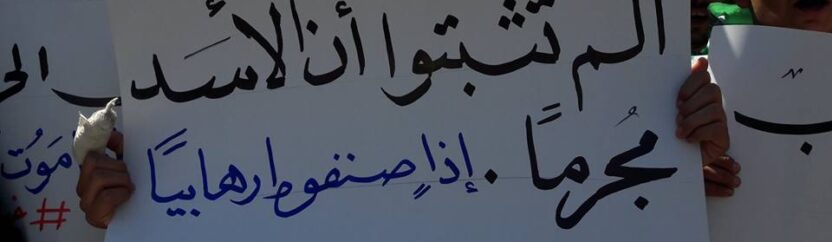 الم تثبتوا أن الأسد
مُجرماً . إذاٍ صنفوه ارهابيًا